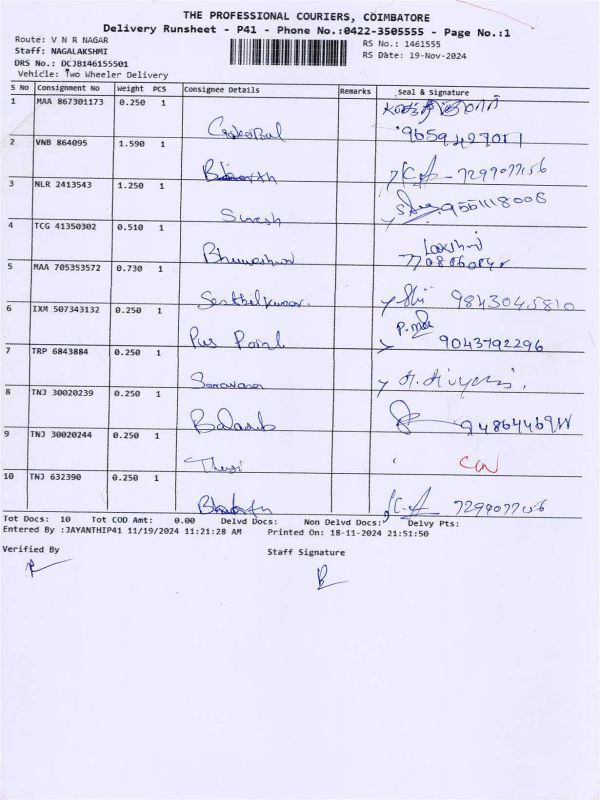 THE PROFESSIONAL COURIERS, COIMBATORE
Delivery Runsheet - P41 - Phone No.:0422-3505555 - Page No.:1
Route: V N R NAGAR
RS No.: 1461555
Staff: NAGALAKSHMI
RS Date: 19-Nov-2024
DRS No.: DCJB146155501
Vehicle: Two Wheeler Delivery
S No Consignment No Weight PCS Consignee Details Remarks Seal & Signature
1 MAA 867301173 0.250 1
2 VNB 864095 1.590 1 Bharath 7299077156
3 NLR 2413543 1.250 1 Suresh 9551118008
4 TCG 41350302 0.510 1 Lakshmi
5 MAA 705353572 0.730 1 Senthilkumar. 9843045810
6 IXM 507343132 0.250 1 Pus Point 9043792296
7 TRP 6843884 0.250 1 Saravana
8 TNJ 30020239 0.250 1
9 TNJ 30020244 0.250 1
10 TNJ 632390 0.250 1 Bharath 7299077156
Tot Docs: 10 Tot COD Amt: 0.00 Delvd Docs: Non Delvd Docs: Delvy Pts:
Entered By :JAYANTHIP41 11/19/2024 11:21:28 AM Printed On: 18-11-2024 21:51:50
Verified By
Staff Signature